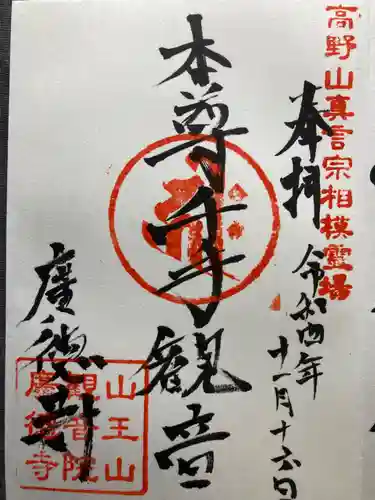 高野山真言宗相模霊場
奉拝
令和四年
十一月十六日
本尊千手觀音
廣徳寺
山王山
觀音院
廣徳寺